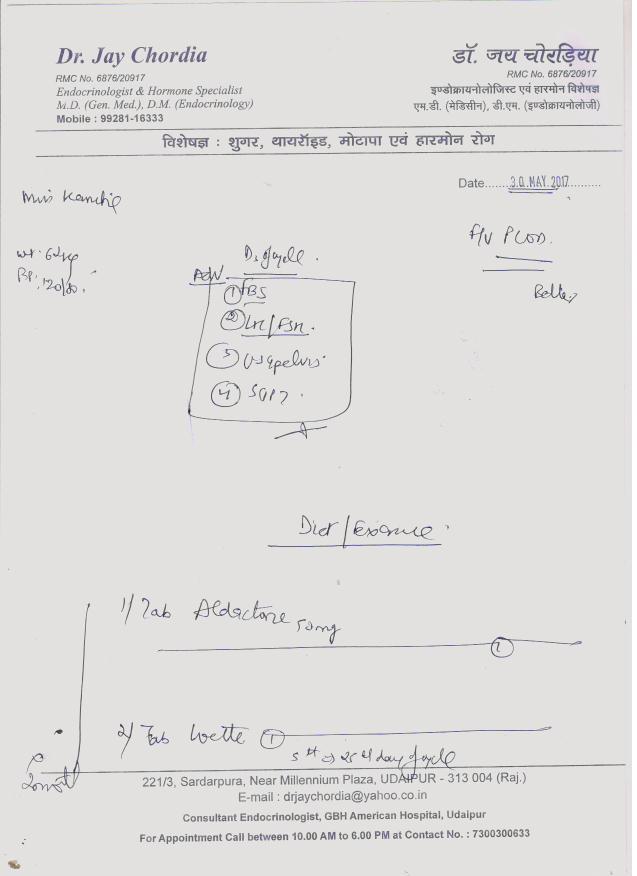 Dr. Jay Chordia
RMC No. 6876/20917
Endocrinologist & Hormone Specialist
M.D. (Gen. Med.), D.M. (Endocrinology)
Mobile : 99281-16333
डॉ. जय चोरड़िया
RMC No. 6876/20917
इण्डोक्रायनोलोजिस्ट एवं हारमोन विशेषज्ञ
एम.डी. (मेडिसीन), डी.एम. (इण्डोक्रायनोलोजी)
विशेषज्ञ : शुगर, थायरॉइड, मोटापा एवं हारमोन रोग
Date......30 MAY 2017..........
Miss
F/U PCOD.
BP: 120/80.
Better
Adv
① FBS
② LH/FSH.
③ USG pelvis
④ SGPT.
Diet/Exercise
1/ Tab Aldactone 50mg
①
2/ Tab
①
5th → 25th day of cycle
221/3, Sardarpura, Near Millennium Plaza, UDAIPUR - 313 004 (Raj.)
E-mail : drjaychordia@yahoo.co.in
Consultant Endocrinologist, GBH American Hospital, Udaipur
For Appointment Call between 10.00 AM to 6.00 PM at Contact No. : 7300300633